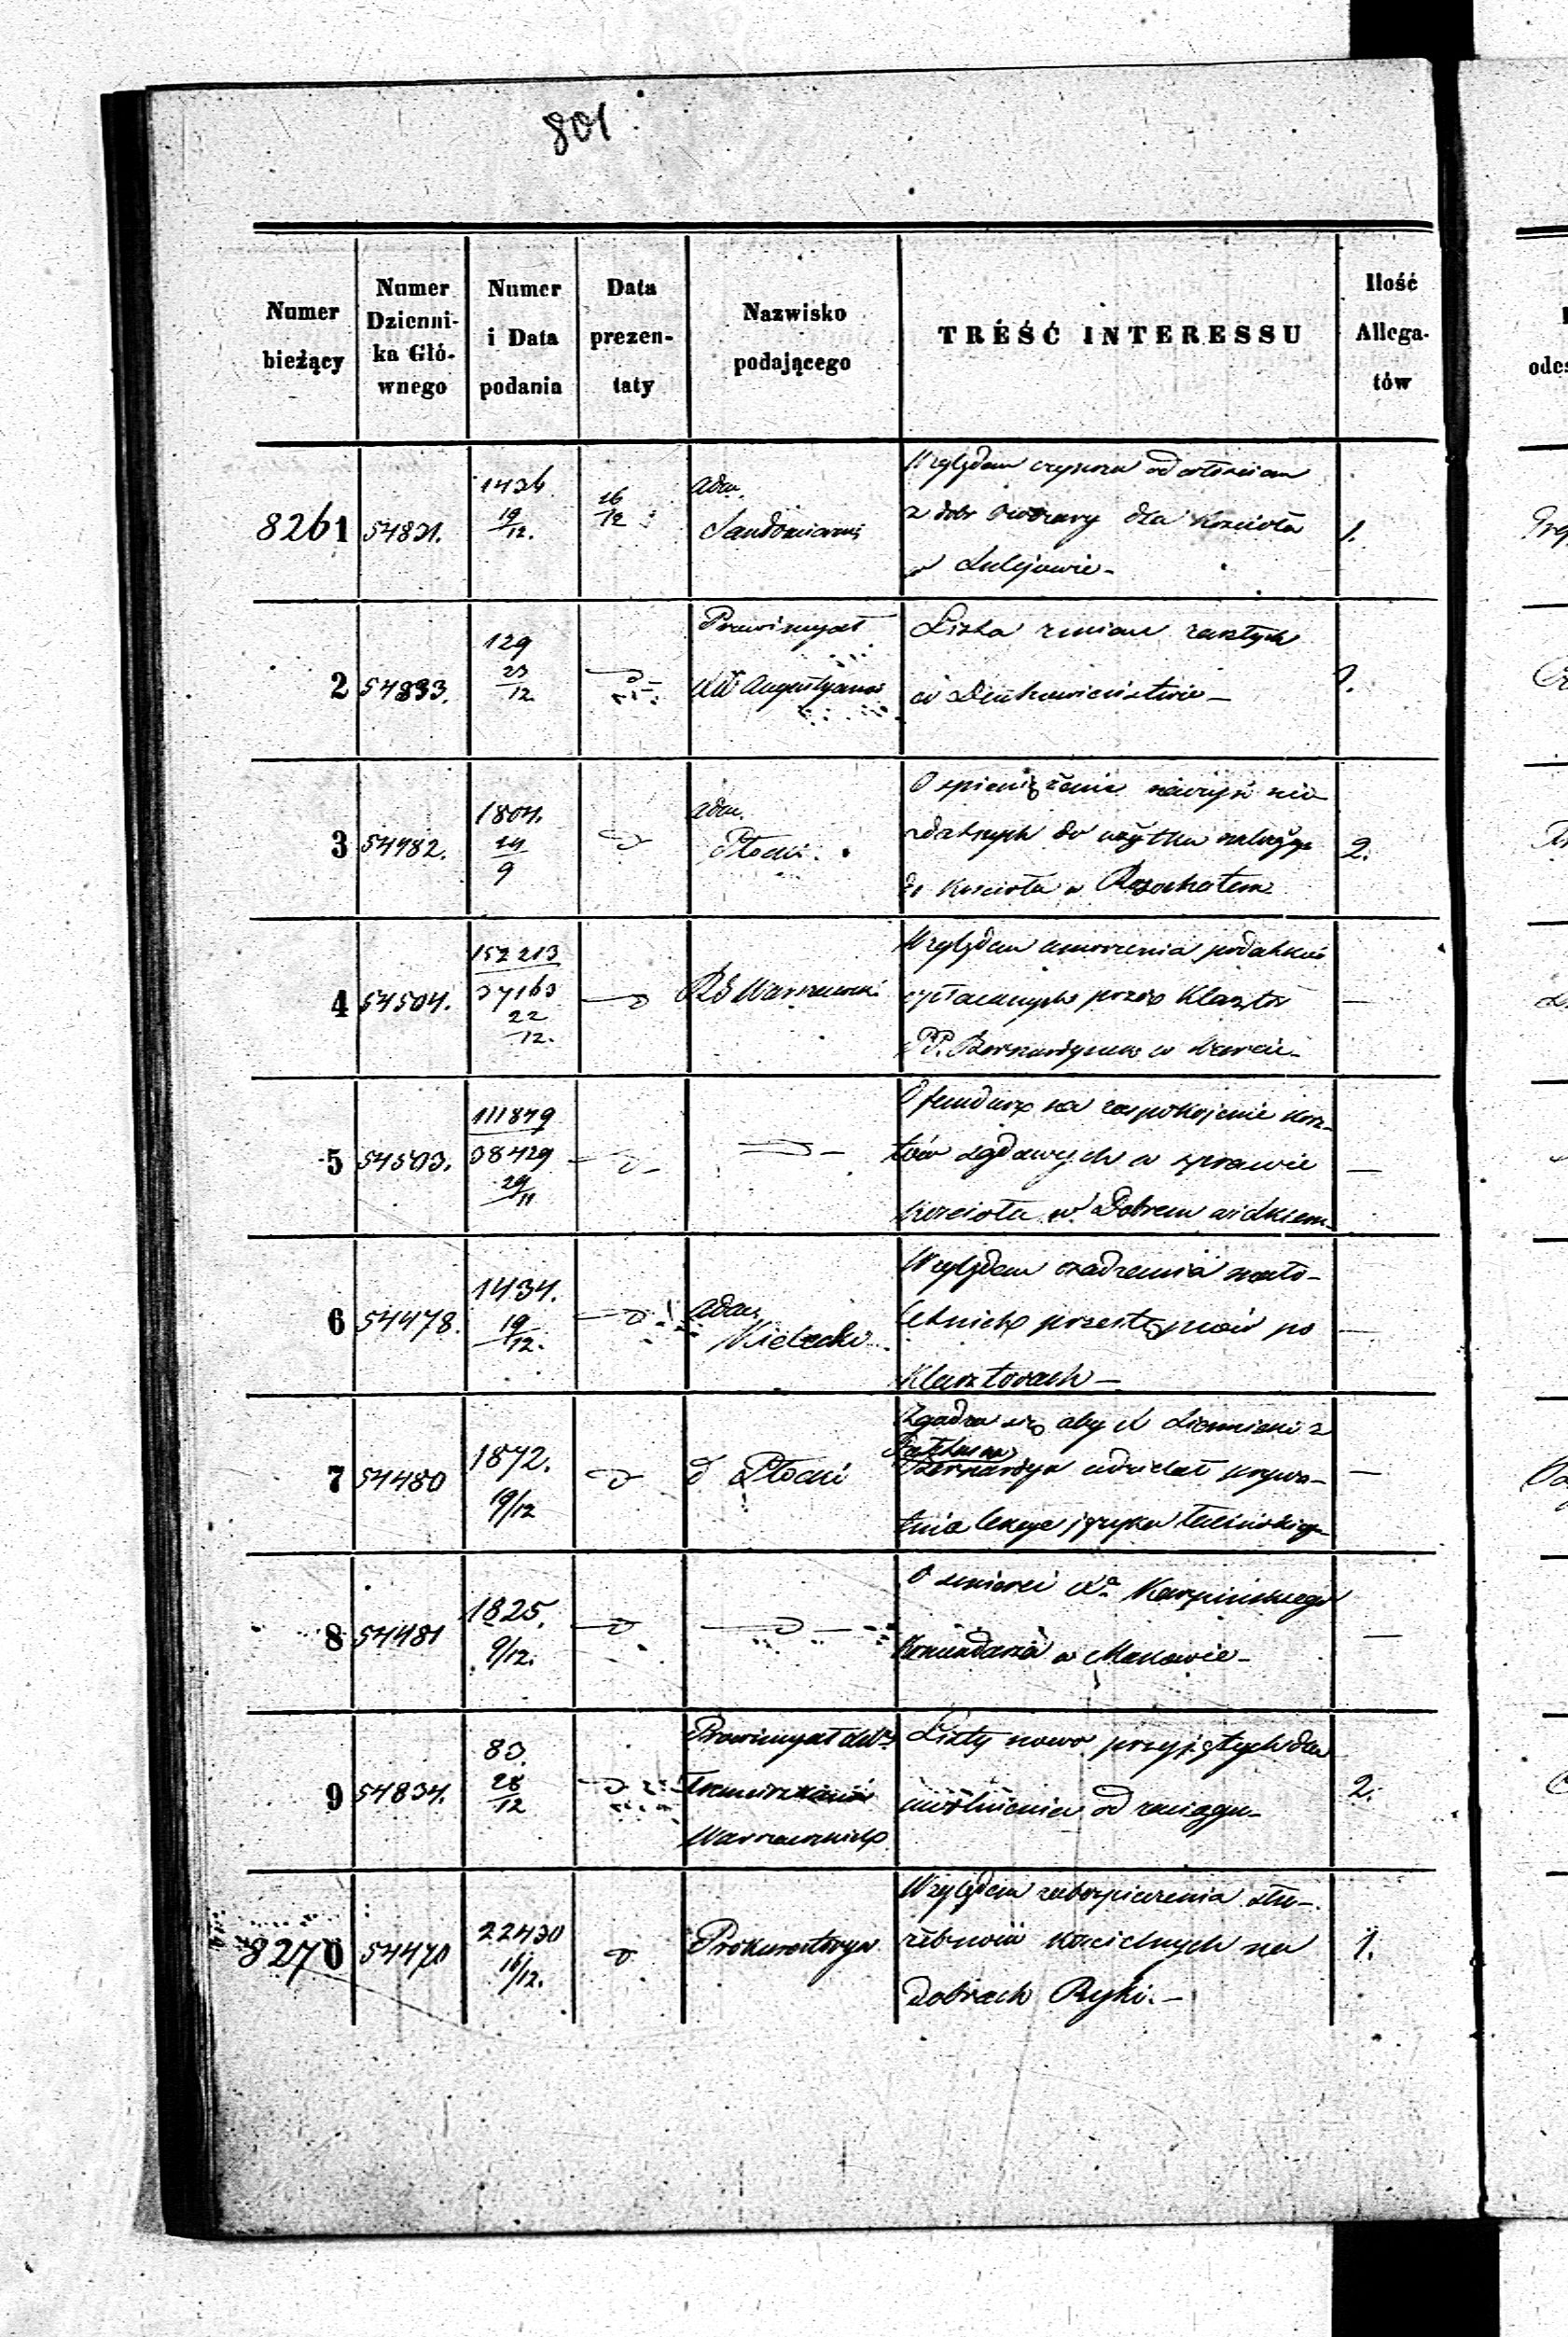 801
Numer bieżący
Numer Dzienni- ka Głó- wnego
Numer i Data podania
Data prezen- taty
Nazwisko podającego
TRÉŚĆ INTERESSU
Ilość Allega- tów
8261 54831. 1436 19/12. 16/12 Adm. Sandomierski
Względem czynszu od włościan
z dóbr dla Kościoła 1.
w Lulejowie -
2 54833. 129 23/12 Prowincyał Augustyanów
Lista zmian zaszłych
w Duchowieństwie -
3 54482. 1804. 24/9 Adm. Płocki.
O spieniężenie nie
zdatnych do użytku 2.
do Kościoła w Rosochatem
4 54504. 152213 37163 22/12. RG Warszawski
Względem umorzenia podatków
opłacanych przez Klasztor —
PP. Bernardynek w Warcie -
5 54503. 111879 38429 29/11
O fundusz na zaspokojenie kosz-
tów sądowych w sprawie —
kościoła w Dobrem wielkiem -
6 54478. 1434. 19/12. Adm. Kielecki
Względem osadzenia mało-
letnich przestępców po —
Klasztorach -
7 54480 1872. 19/12 d Płocki
Zgadza się aby X
Bernardyn udzielał prywa- —
tnie lekcye języka
8 54481 1825. 9/12.
O śmierci Xa Karpińskiego
Komendarza w Makowie - —
9 54834. 83. 28/12 Prowincyał
Warszawskich
Listy nowo przyjętych dla 2.
uwolnienia od zaciągu -
8270 54470 22430 16/12. Prokuratorya
Względem zabezpieczenia słu-
żebności kościelnych na 1.
dobrach Ryki. -